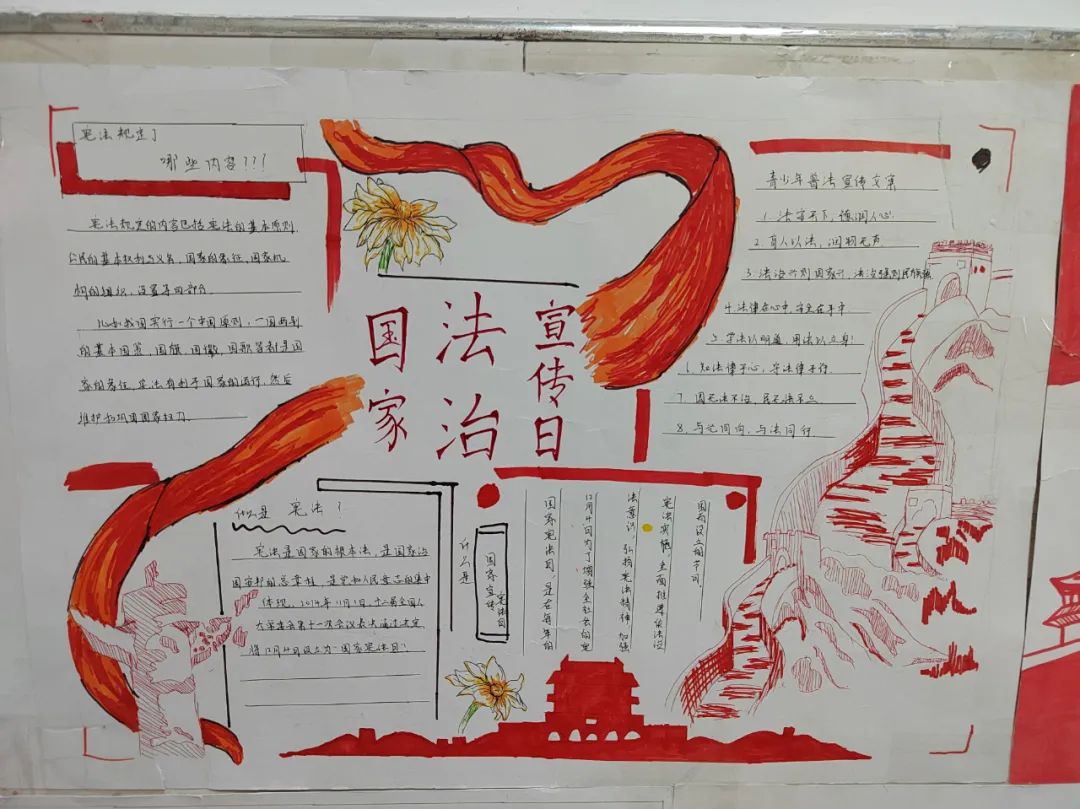 宪法规定了
哪些内容???
宪法规定的内容包括宪法的基本原则
公民的基本权利与义务,国家的象征,国家机
构的组织,设置等四部分
比如我国实行一个中国原则,一国两制
的基本国策,国旗,国徽,国歌等都是国
家的象征,宪法有利于国家的运行,然后
维护和巩固国家权力
国家
法治
宣传日
青少年普法宣传文案
1.法客天下,德润人心
2.育人以法,润物无声
3.法治兴则国家兴,法治强则民族强
4.法律在心中,安全在手中
5.学法以明道,用法以立身!
6.知法律于心,守法律于行
7.国无法不治,民无法不立
8.与心同向,与法同行
什么是 宪法?
宪法是国家的根本法,是国家治
国安邦的总章程,是党和人民意志的集中
体现,2014年11月1日,十二届全国人
大常委会第十一次会议表决通过决定
将12月4日设立为"国家宪法日"
什么是
国家宣传
宪法日
国家宪法日,是在每年的
12月4日为了增强全社会的宪
法意识,弘扬宪法精神,加强
宪法实施,全面推进依法治
国而设立的节日.